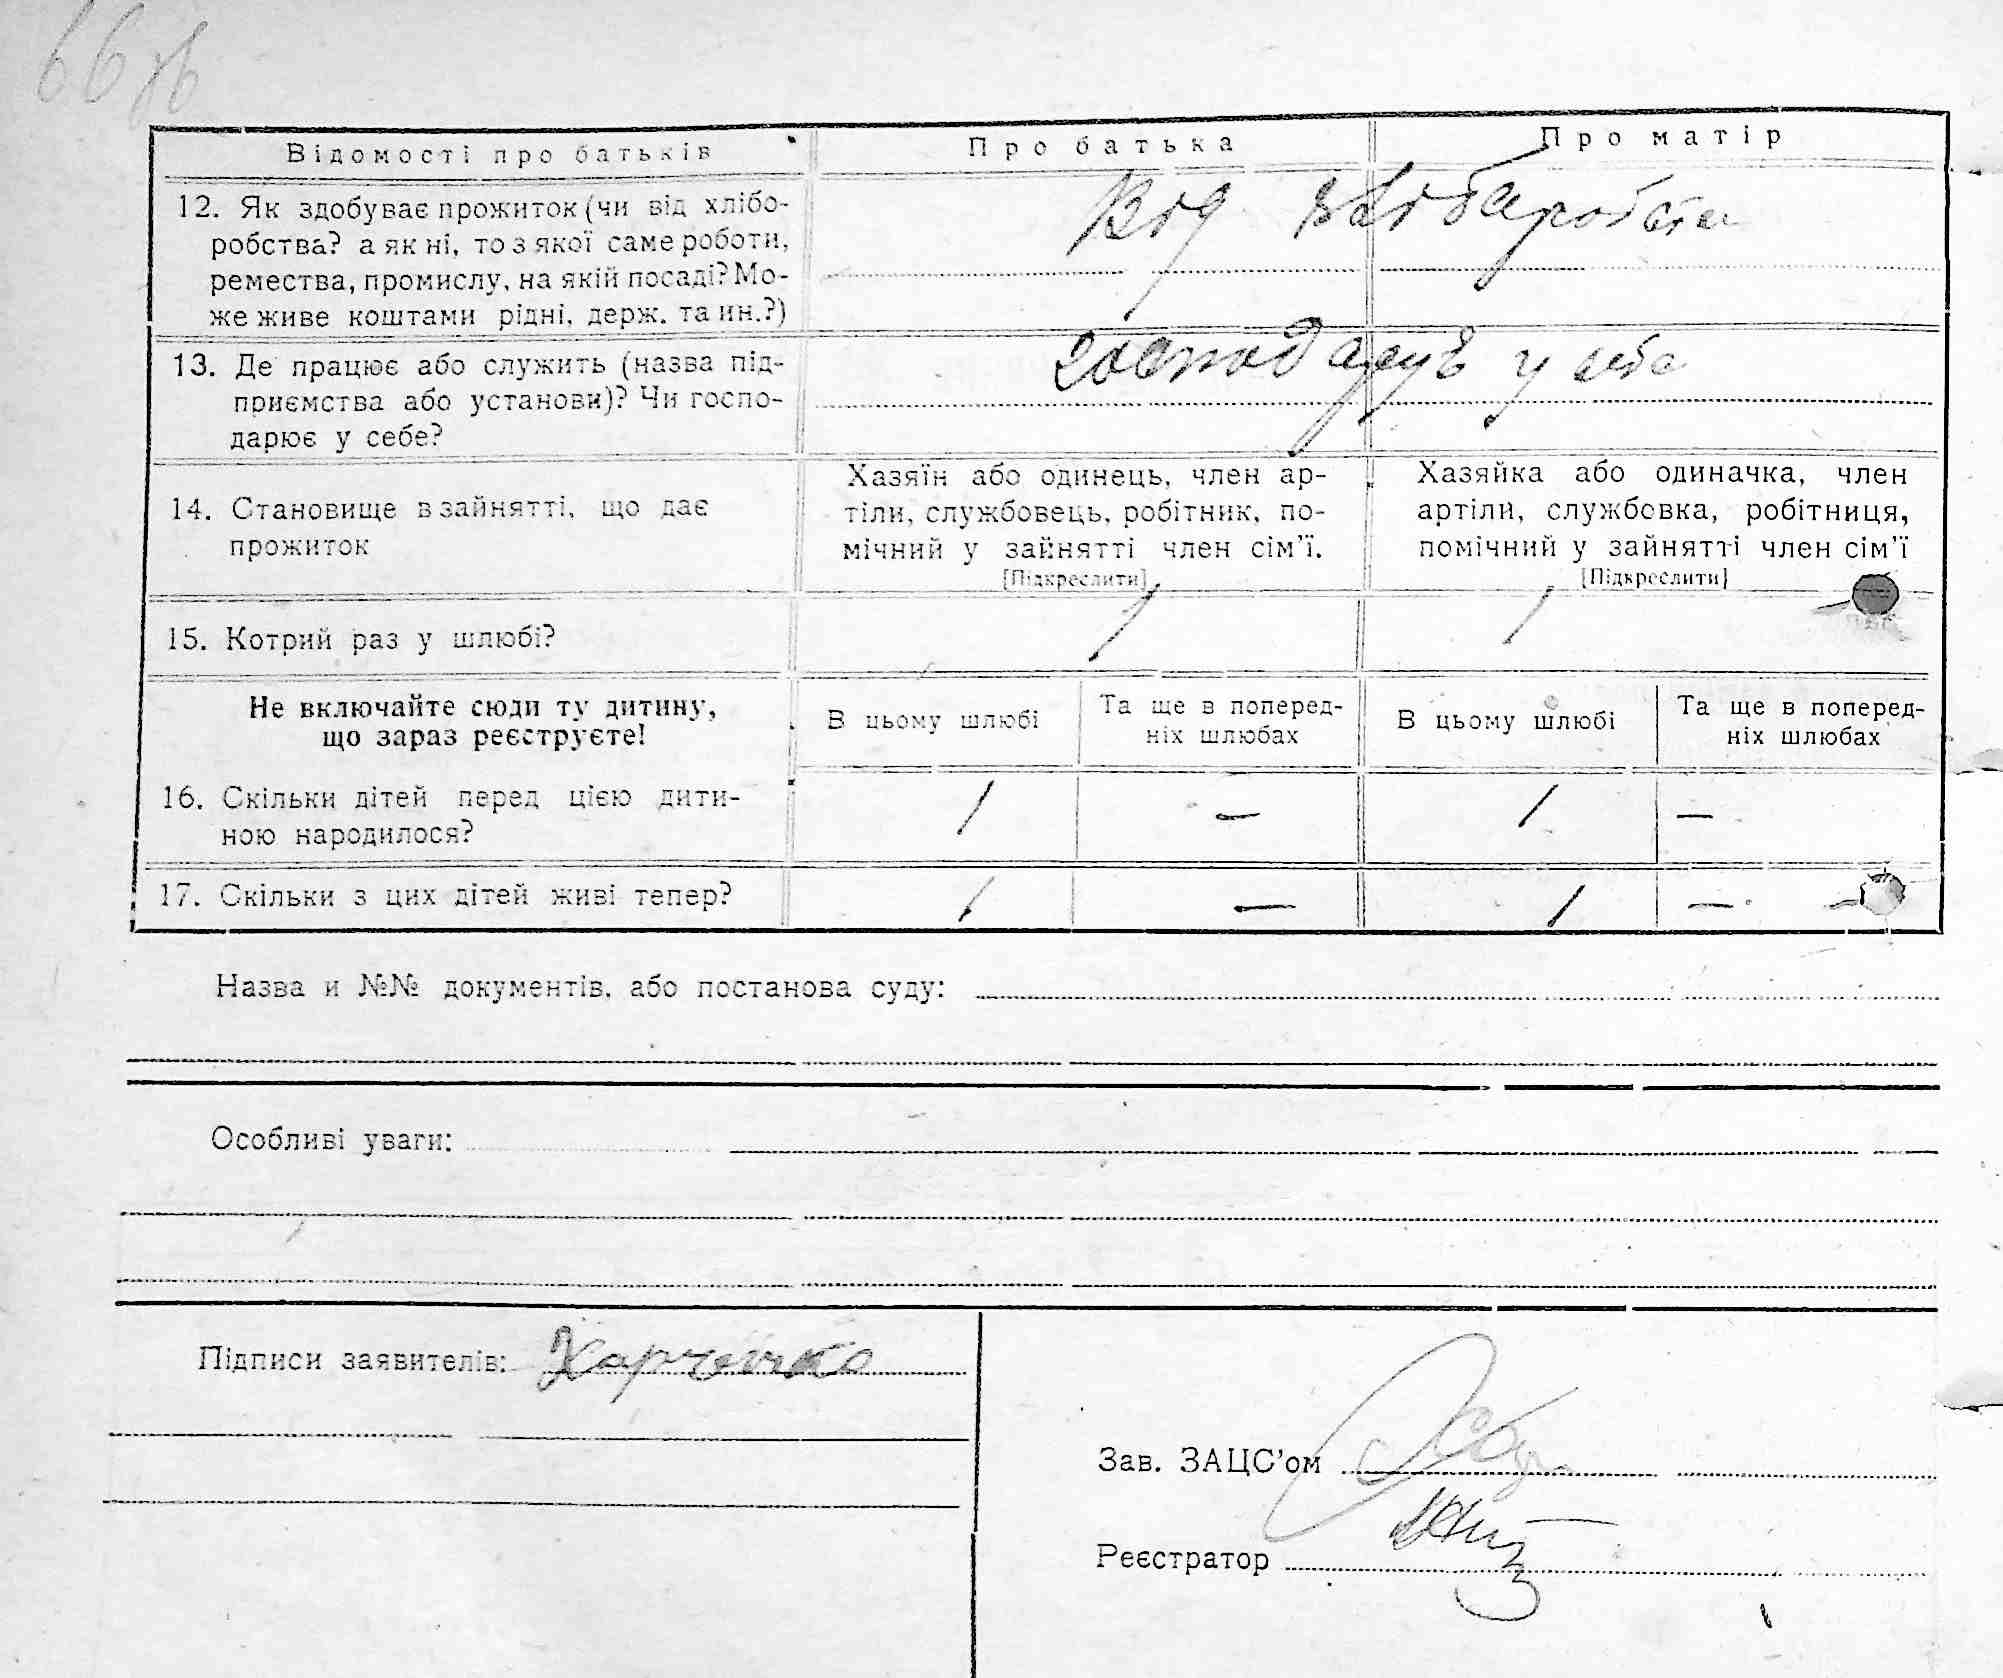 66 зв
Відомості про батьків
Про батька
Про матір
12. Як здобуває прожиток (чи від хлібо-
робства? а як ні, то з якої саме роботи,
ремества, промислу, на якій посаді? Мо-
же живе коштами рідні, держ. та ин.?)
Від хліборобства
13. Де працює або служить (назва під-
приємства або установи)? Чи госпо-
дарює у себе?
господарує у себе
14. Становище в зайнятті, що дає
прожиток
Хазяїн або одинець, член ар-
тіли, службовець, робітник, по-
мічний у зайнятті член сім’ї.
[Підкреслити]
Хазяйка або одиначка, член
артіли, службовка, робітниця,
помічний у зайнятті член сім’ї
[Підкреслити]
15. Котрий раз у шлюбі?
1
1
Не включайте сюди ту дитину,
що зараз реєструєте!
В цьому шлюбі
Та ще в поперед-
ніх шлюбах
В цьому шлюбі
Та ще в поперед-
ніх шлюбах
16. Скільки дітей перед цією дити-
ною народилося?
1 — 1 —
17. Скільки з цих дітей живі тепер?
1 — 1 —
Назва и №№ документів, або постанова суду:
Особливі уваги:
Підписи заявителів: Харченко
Зав. ЗАЦС’ом
Реєстратор